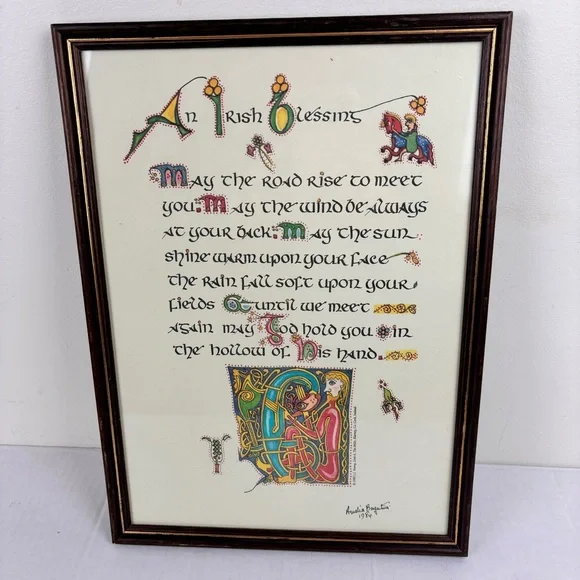 An Irish Blessing
May the road rise to meet
you. May the wind be always
at your back. May the sun
shine warm upon your face
the rain fall soft upon your
fields & until we meet
again may God hold you in
the hollow of His hand.
1984